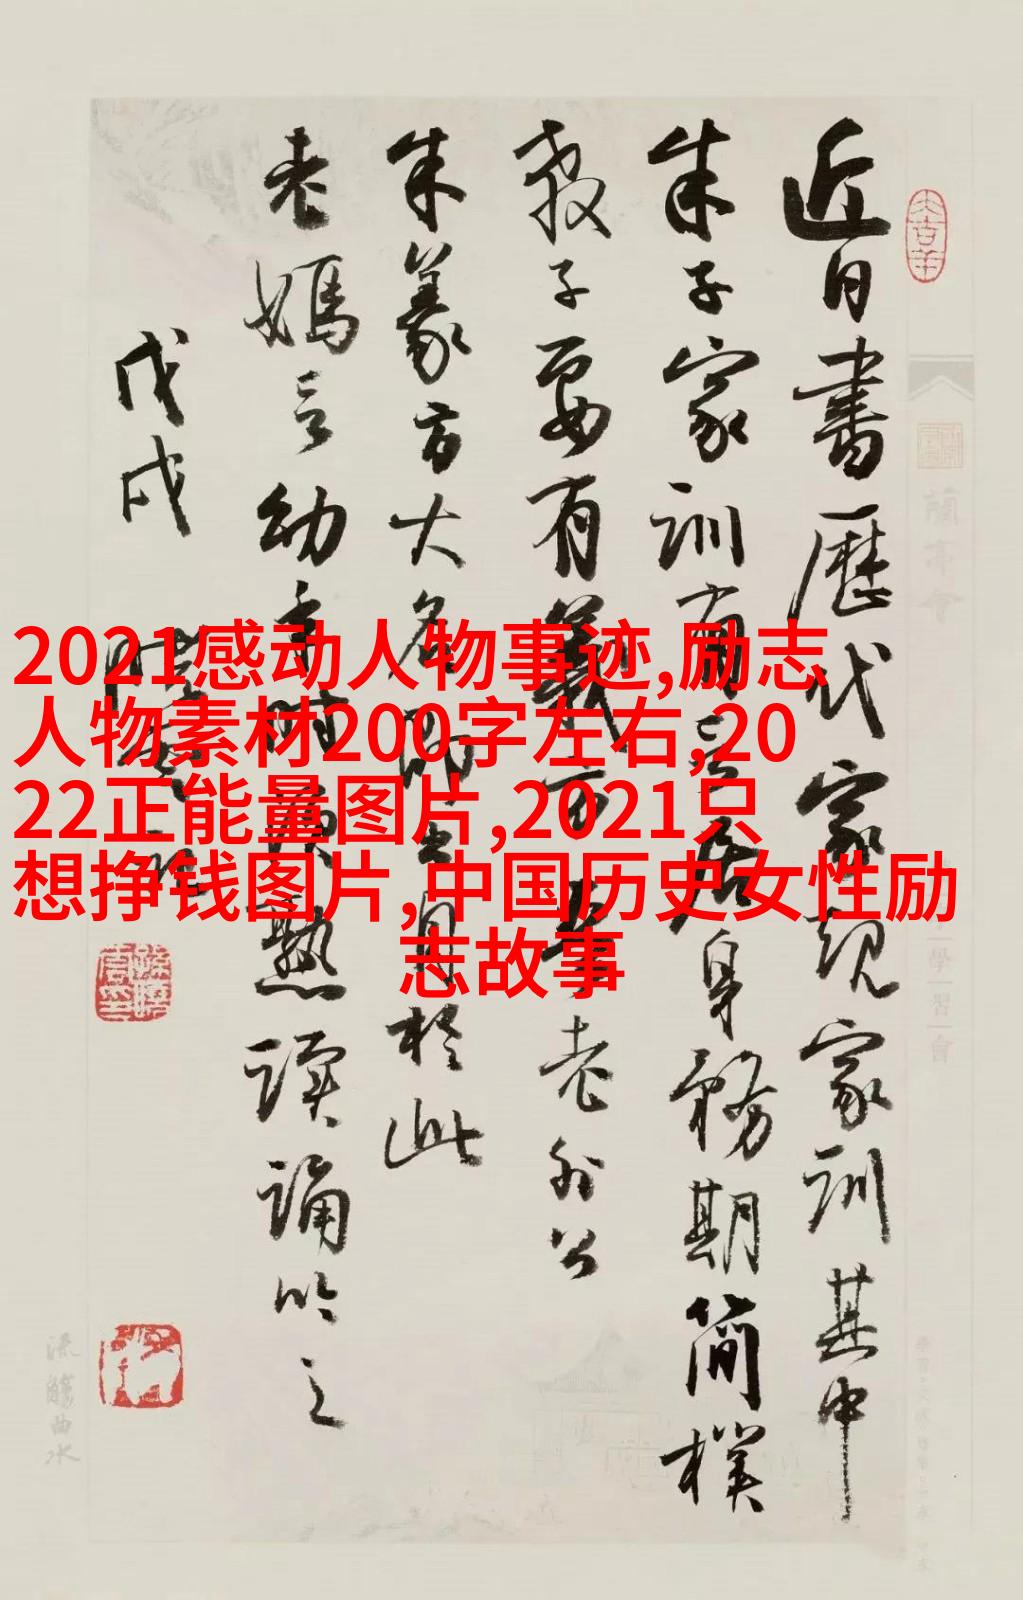 近日書歷代家規家訓其中
朱子家訓有云居身務期簡樸
教子要有義方幸老外公
朱篆方大名即出自於此
老媽言幼年時須熟讀誦吟之
戊戌
2021感动人物事迹,励志
人物素材200字左右,20
22正能量图片,2021只
想挣钱图片,中国历史女性励
志故事
蘭亭會
流觴曲水